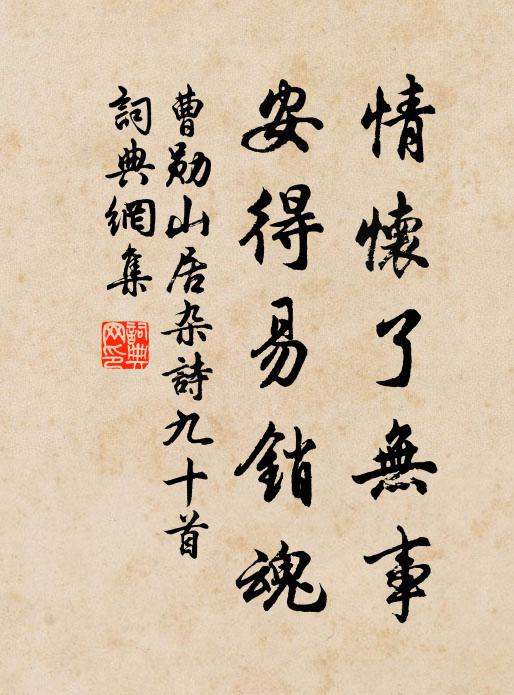 情懷了無事
安得易銷魂
曹勛山居杂詩九十首
詞典網集
詞典網印